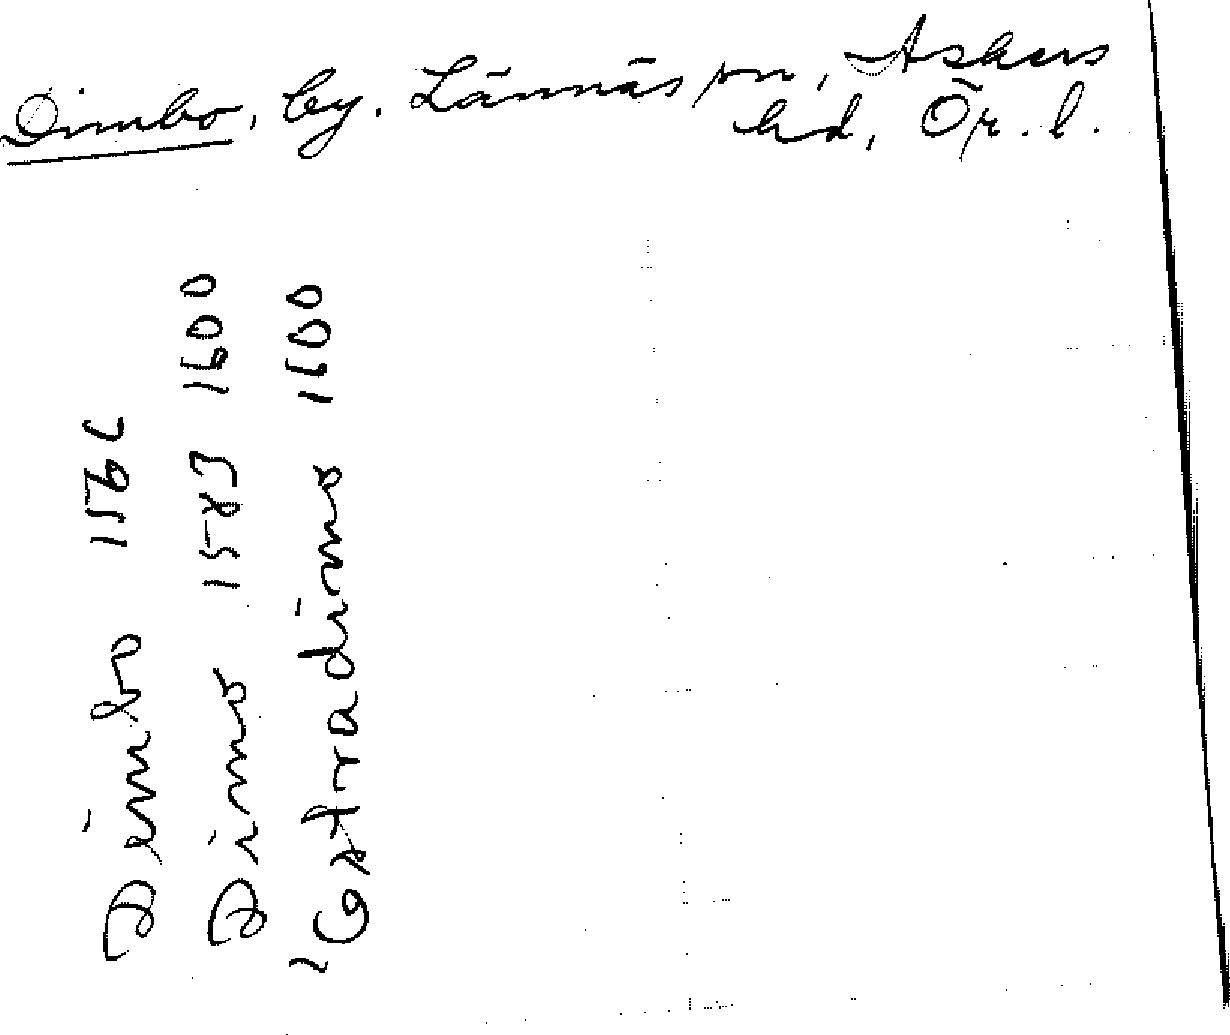 Dimbo, by. Lännäs sn, Askers
hd, Ör. l.
Dimbo
Dimo 1583 1600
Östradimo 1600